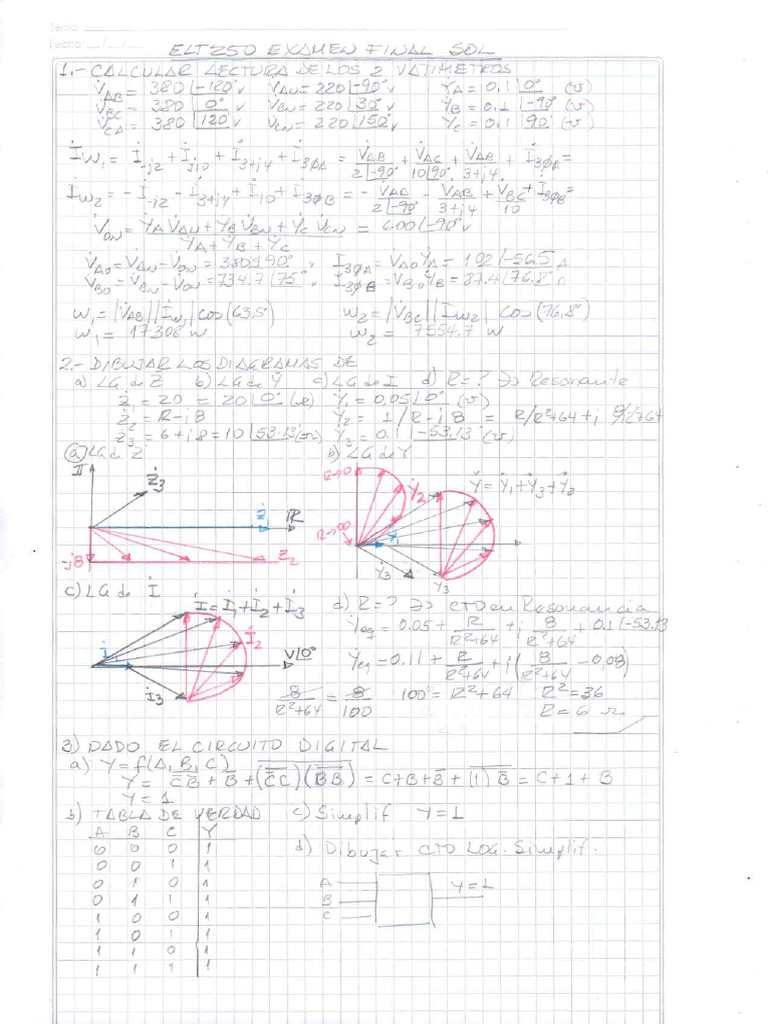 Tema:
Fecha: __/__/__
ELT 250 EXAMEN FINAL SOL
1.- CALCULAR LECTURA DE LOS 2 VATIMETROS
V̇AB = 380 |-120° v V̇AN = 220 |-90° v YA = 0.1 |0° (℧)
V̇BC = 380 |0° v V̇BN = 220 |30° v ẎB = 0.1 |-90° (℧)
V̇CA = 380 |120° v V̇CN = 220 |150° v ẎC = 0.1 |90° (℧)
İW1 = İ-j2 + İj10 + İ3+j4 + İ3ØA = V̇AB/2|-90° + V̇AC/10|90° + V̇AB/3+j4 + İ3ØA =
İW2 = - İ-j2 - İ3+j4 + İ10 + İ3ØB = - V̇AB/2|-90° - V̇AB/3+j4 + V̇BC/10 + İ3ØB =
V̇ON = (ẎA V̇AN + ẎB V̇BN + ẎC V̇CN)/(ẎA + ẎB + ẎC) = 600 |-90° v
V̇AO = V̇AN - V̇ON = 380 |90° v İ3ØA = V̇AO ẎA = 102 |-56.5 A
V̇BO = V̇BN - V̇ON = 734.7 |75° v İ3ØB = V̇BO ẎB = 87.4 |76.8° A
W1 = |V̇AB| |İW1| cos(63,5°) W2 = |V̇BC| |İW2| cos(76,8°)
W1 = 17308 W W2 = 7554.7 W
2.- DIBUJAR LOS DIAGRAMAS DE
a) LG de Z b) LG de Y c) LG de I d) R = ? => Resonante
Ż1 = 20 = 20 |0° (Ω) Y1 = 0,05 |0° (℧)
Ż2 = R - j8 Y2 = 1/R - j8 = R/R²+64 + j 8/R²+64
Ż3 = 6 + j8 = 10 |53.13 (Ω) Y3 = 0.1 |-53.13° (℧)
a) LG de Z b) LG de Y
II
Ż3
R
Ż1
-j8
Z2
R→0
R→∞
Ẏ2
Ẏ1
Ẏ3
Y3
Ẏ = Ẏ1 + Ẏ3 + Ẏ2
c) LG de İ
İ = İ1 + İ2 + İ3
İ2
İ1
İ3
V|0°
d) R = ? => CTO en Resonancia
Ẏeq = 0.05 + R/R²+64 + j 8/R²+64 + 0.1 |-53.13
Ẏeq = 0.11 + R/R²+64 + j(8/R²+64 - 0,08)
8/R²+64 = 8/100 100 = R²+64 R² = 36
R = 6 Ω
3) DADO EL CIRCUITO DIGITAL
a) Y = f(A, B, C)
Y = C̅B̅ + B̅ + (C̅C)(B̅B) = C+B+B̅ + (1) B̅ = C + 1 + B
Y = 1
b) TABLA DE VERDAD c) Simplif Y = 1
A B C Y
0 0 0 1
0 0 1 1
0 1 0 1
0 1 1 1
1 0 0 1
1 0 1 1
1 1 0 1
1 1 1 1
d) Dibujar CTO LOG. Simplif.
A
B
C
Y = 1